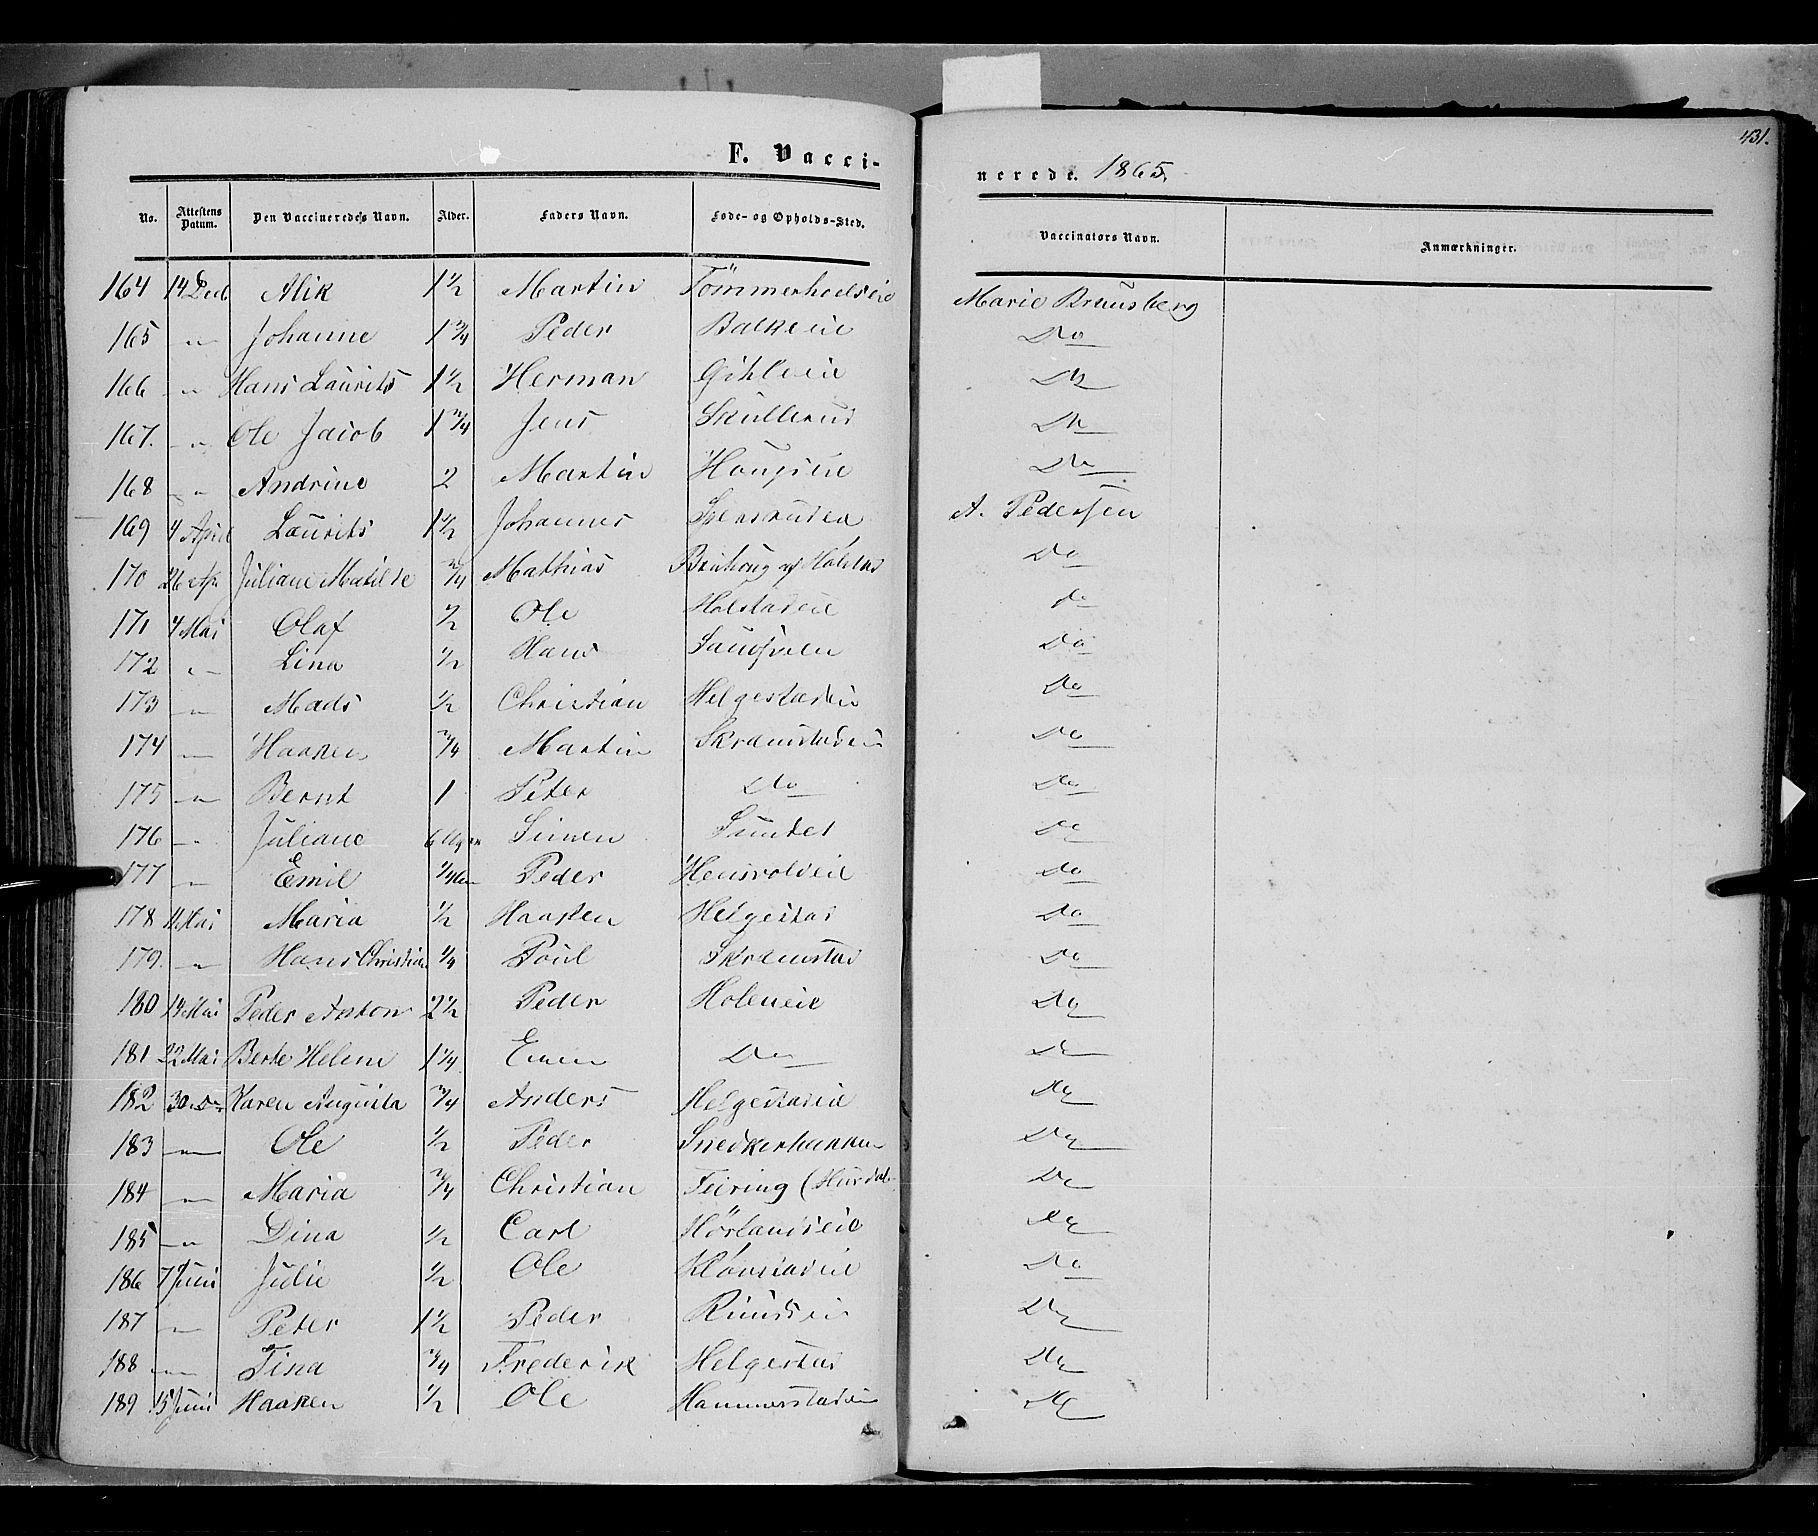 431.
F. Vacci-
nerede. 1865.
No. Attestens Datum. Den Vaccineredes Navn. Alder. Faders Navn. Føde- og Opholds-Sted. Vaccinators Navn. Anmærkninger.
164 14 Dec Alik 1 1/2 Martin Marie Bruusberg
165 " Johanne 1 3/4 Peder Balkeeie Do
166 " Hans Laurits 1 1/2 Herman Gihleeie Do
167. " Ole Jacob 1 3/4 Jens Skullerud Do
168 " Andrine 2 Martin Do
169 4 April Laurits 1 1/2 Johannes A. Pedersen
170 26 Ap. Juliane Matilde 3/4 Mathias Do
171 4 Mai Olaf 1/2 Ole Holstadeie do
172 " Lina 1/2 Hans Do
173 " Mads 1/2 Christian Helgestadeie Do
174 " Haaken 3/4 Martin Skramstadeie Do
175 " Bernt 1 Peter Do Do
176 " Juliane 6 Simen Sundet Do
177 " Emil 1/4 Peder Hensvoldeie Do
178 11 Mai Maria 1/2 Haaken Helgestad Do
179. " Hans Christian 1/4 Poul Skramstad Do
180 14 Mai Peder Anton 2 1/2 Peder Holeneie Do
181 22 Mai Berte Helene 1 1/4 Even Do Do
182 30 Do Karen Augusta 3/4 Anders Helgestadeie Do
183 " Ole 1/2 Peder Snedkerbakken Do
184 " Maria 3/4 Christian Feiring (Hurdal Do
185 " Dina 1/2 Carl Hörlandseie Do
186 7 Juni Julie 1/2 Ole Do
187 " Peter 1 1/2 Peder Ruudseie Do
188 " Tina 3/4 Frederik Helgestad Do
189 15 Juni Haaken 1/2 Ole Hammerstadeie Do